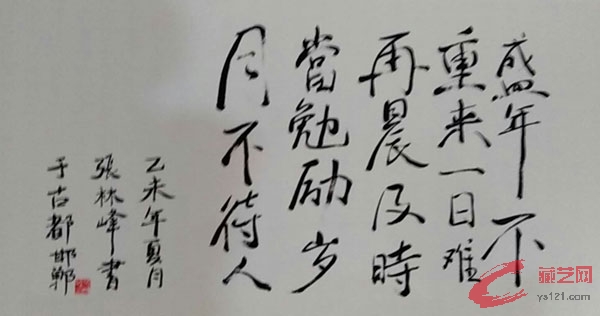 盛年不
重来一日难
再晨及時
當勉励岁
月不待人
乙未年夏月
張林峰书
于古都邯郸
藏艺网
ys121.com